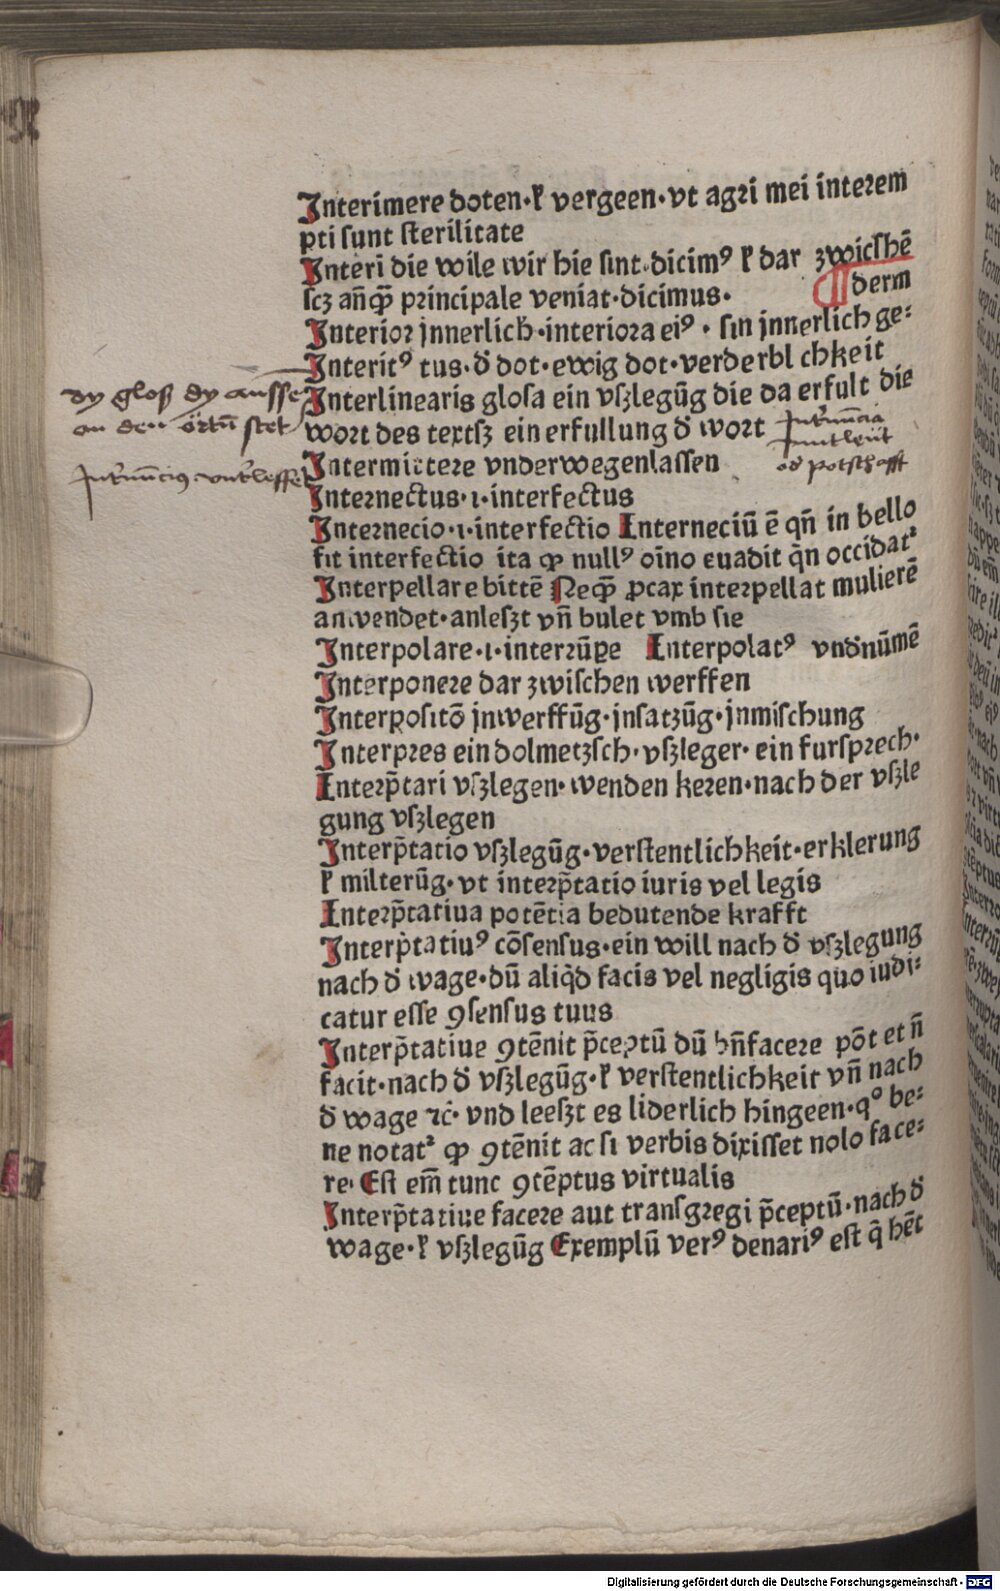 Interimere doten·ꝉ vergeen·vt agri mei interem
pti sunt sterilitate
Interī die wile wir hie sint·dicimꝰ ꝉ dar zwicshē
scz an̄qꝫ principale veniat·dicimus· derm
Interior jnnerlich·interiora eiꝰ · sin jnnerlich ge⸗
Interitꝰ tus·đ dot·ewig dot·verderbl chkeit
Interlinearis glosa ein vſzlegūg die da erfult die
dy gloß dy aussē
an den örtn̄ stet
wort des textſz ein erfullung đ wort
Intermittere vnderwegenlassen
od potschafft
Internectus·ı·interfectus
Internecio·ı·interfectio Interneciū ē qn̄ in bello
fit interfectio ita ꝙ nullꝰ oīno euadit q̄n occidat᷑
Interpellare bittē Neqꝫ ꝓcax interpellat mulierē
anwendet·anleſzt vn̄ bulet vmb sie
Interpolare·ı·interrūpe Interpolatꝰ vnđnūmē
Interponere dar zwischen werffen
Interpositō jnwerffūg·jnsatzūg·jnmischung
Interpres ein dolmetzsch·vſzleger·ein fursprech·
Interp̄tari vſzlegen·wenden keren·nach der vſzle
gung vſzlegen
Interp̄tatio vſzlegūg·verstentlichkeit·erklerung
ꝉ milterūg·vt interp̄tatio iuris vel legis
Interp̄tatiua potētia bedutende krafft
Interp̄tatiuꝰ cōsensus·ein will nach đ vſzlegung
nach đ wage·dū aliq̇d facis vel negligis quo iudi⸗
catur esse ꝯsensus tuus
Interp̄tatiue ꝯtēnit p̄ceptū dū bn̄facere pōt et n̄
facit·nach đ vſzlegūg·ꝉ verstentlichkeit vn̄ nach
đ wage ⁊c̄· vnd leeſzt es liderlich hingeen·qͦ be⸗
ne notat᷑ ꝙ ꝯtēnit ac si verbis dixisset nolo face⸗
re· Est em̄ tunc ꝯtēptus virtualis
Interp̄tatiue facere aut transgregi p̄ceptū·nach đ
wage·ꝉ vſzlegūg Exemplū verꝰ denariꝰ est q̄ hēt
Digitalisierung gefördert durch die Deutsche Forschungsgemeinschaft - DFG